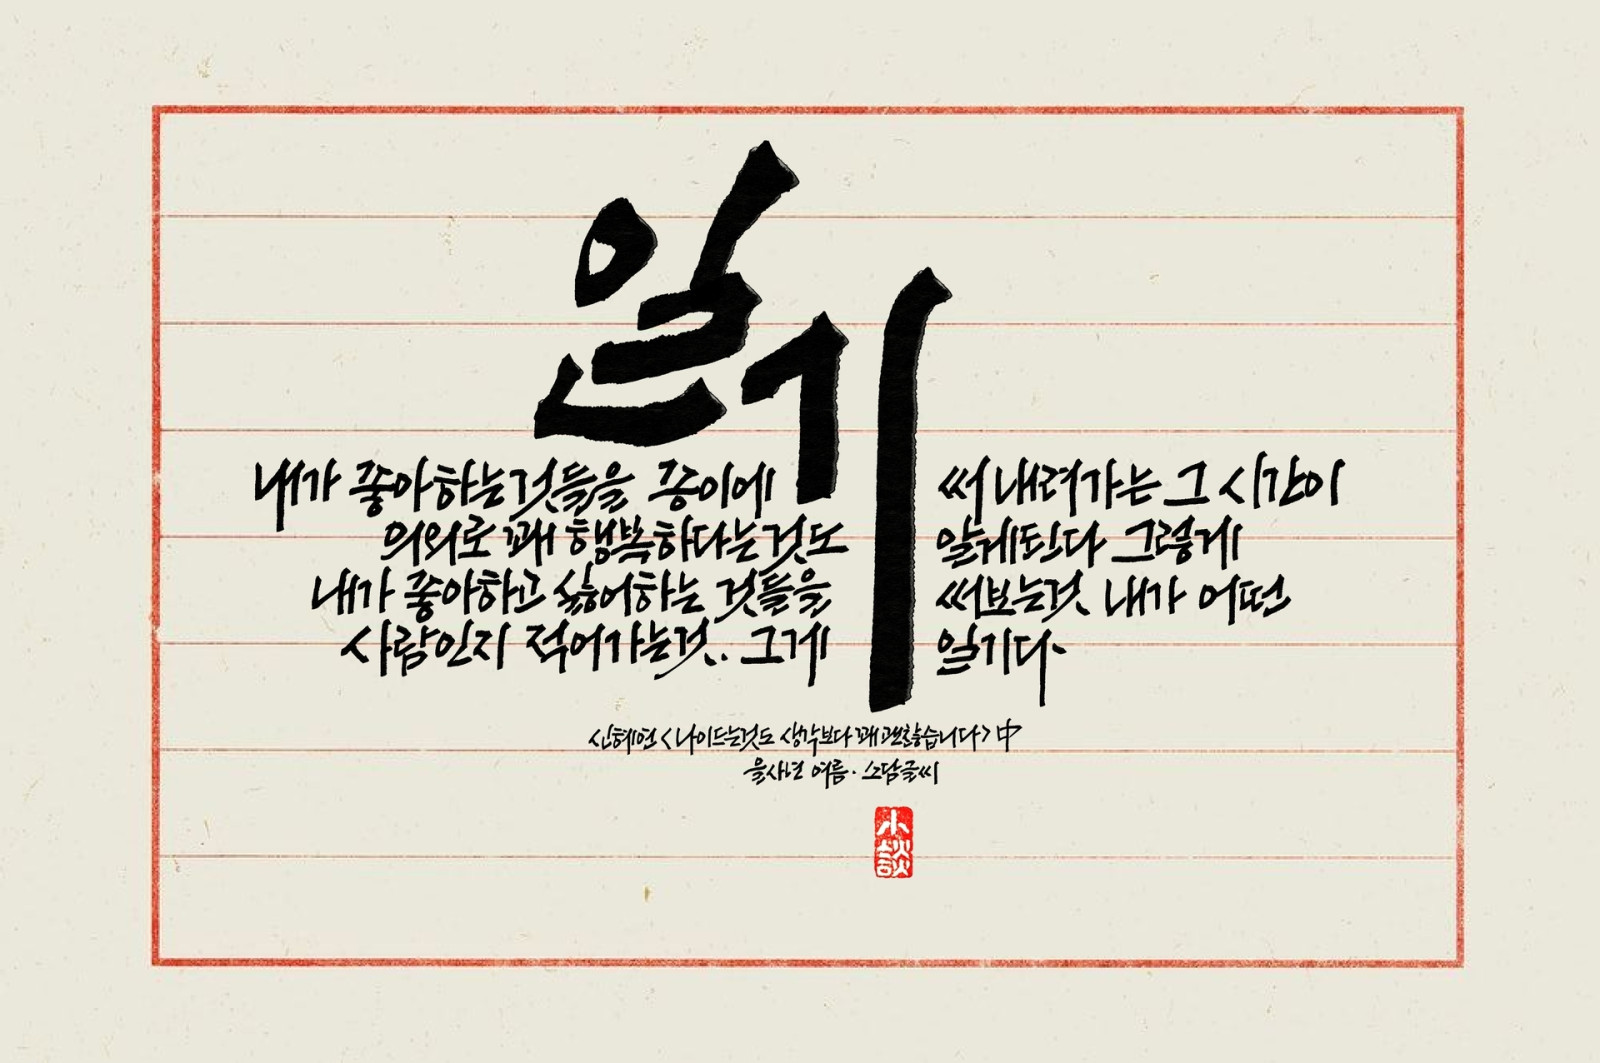 일기
내가 좋아하는것들을 종이에 써 내려가는 그 시간이
의외로 꽤 행복하다는것도 알게된다 그렇게
내가 좋아하고 싫어하는 것들을 써보는것 내가 어떤
사람인지 적어가는것.. 그게 일기다.
신혜연 <나이드는것도 생각보다 꽤 괜찮습니다> 中
을사년 여름. 소담글씨
小談